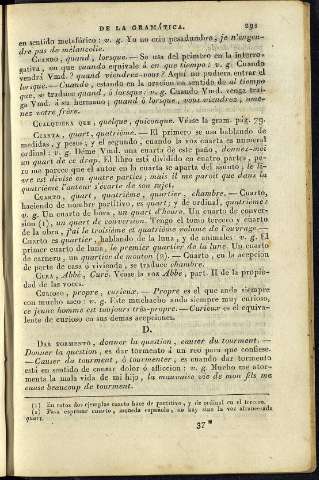 DE LA GRAMÁTICA. 291
en sentido metafórico: v. g. Yo no crio pesadumbre, je n'engen-
dre pas de mélancolie.
CUANDO, quand, lorsque. — Se usa del primero en la interro-
gativa, en que cuando equivale á en que tiempo: v. g. Cuando
vendrá Vmd.? quand viendrez-vous? Aqui no pudiera entrar el
lorsque. — Cuando, estando en la oracion en sentido de al tiempo
que, se traduce quand, ó lorsque: v. g. Cuando Vmd. venga trai-
ga Vmd. á su hermano; quand ó lorsque, vous viendrez, ame-
nez votre frère.
CUALQUIERA QUE, quelque, quiconque. Véase la gram. pág. 79.
CUARTA, quart, quatrième. — El primero se usa hablando de
medidas, y pesos, y el segundo, cuando la voz cuarta es número
ordinal: v. g. Déme Vmd. una cuarta de este paño, donnez-moi
un quart de ce drap. El libro está dividido en cuatro partes, pe-
ro me parece que el autor en la cuarta se aparta del asunto, le li-
vre est divisé en quatre parties; mais il me paroît que dans la
quatrième l'auteur s'écarte de son sujet.
CUARTO, quart, quatrième, quartier, chambre. — Cuarto,
haciendo de nombre partitivo, es quart; y de ordinal, quatrième:
v. g. Un cuarto de hora, un quart d'heure. Un cuarto de conver-
sion (1), un quart de conversion. Tengo el tomo tercero y cuarto
de la obra, j'ai le troisième et quatrième volume de l'ouvrage. —
Cuarto es quartier, hablando de la luna, y de animales: v. g. El
primer cuarto de luna, le premier quartier de la lune. Un cuarto
de carnero, un quartier de mouton (2). — Cuarto, en la acepcion
de parte de casa ó vivienda, se traduce chambre.
CURA, Abbé, Cure. Vease la voz Abbé, part. II de la propie-
dad de las voces.
CURIOSO, propre, curieux. — Propre es el que anda siempre
con mucho aseo: v. g. Este muchacho anda siempre muy curioso,
ce jeune homme est toujours très-propre. — Curieux es el equiva-
lente de curioso en sus demas acepciones.
D.
DAR TORMENTO, donner la question, causer du tourment. —
Donner la question, es dar tormento á un reo para que confiese.
— Causer du tourment, ó tourmenter, es cuando dar tormento
está en sentido de causar dolor ó afliccion: v. g. Mucho me ator-
menta la mala vida de mi hijo, la mauvaise vie de mon fils me
cause beaucoup de tourment.
(1) En estos dos ejemplos cuarto hace de partitivo, y de ordinal en el tercero.
(2) Para expresar cuarto, moneda española, no hay sino la voz afrancesada
quart.
37 *